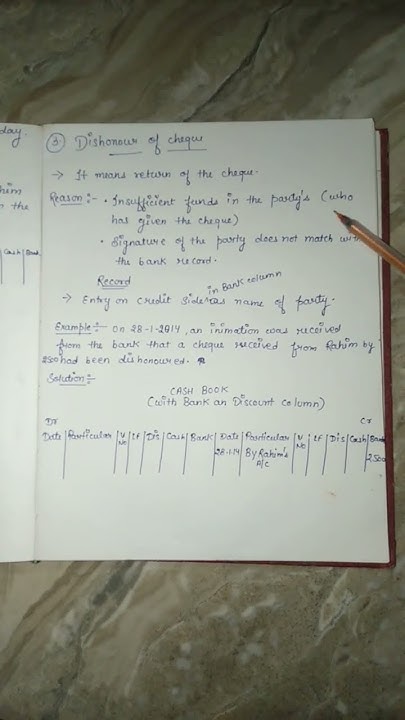 day.
him
the
Cash Bank
③ Dishonour of cheque
→ It means return of the cheque.
Reason:- • Insufficient funds in the party's (who
has given the cheque)
• Signature of the party does not match with
the bank record.
Record
in Bank column
→ Entry on credit side name of party.
Example:- On 28-1-2014, an inimation was received
from the bank that a cheque received from Rahim by
2500 had been dishonoured.
Solution:-
CASH BOOK
(with Bank an Discount column)
Dr Cr
Date Particular V No LF Dis Cash Bank Date Particular V No LF Dis Cash Bank
28.1.14 By Rahim's A/C 2500